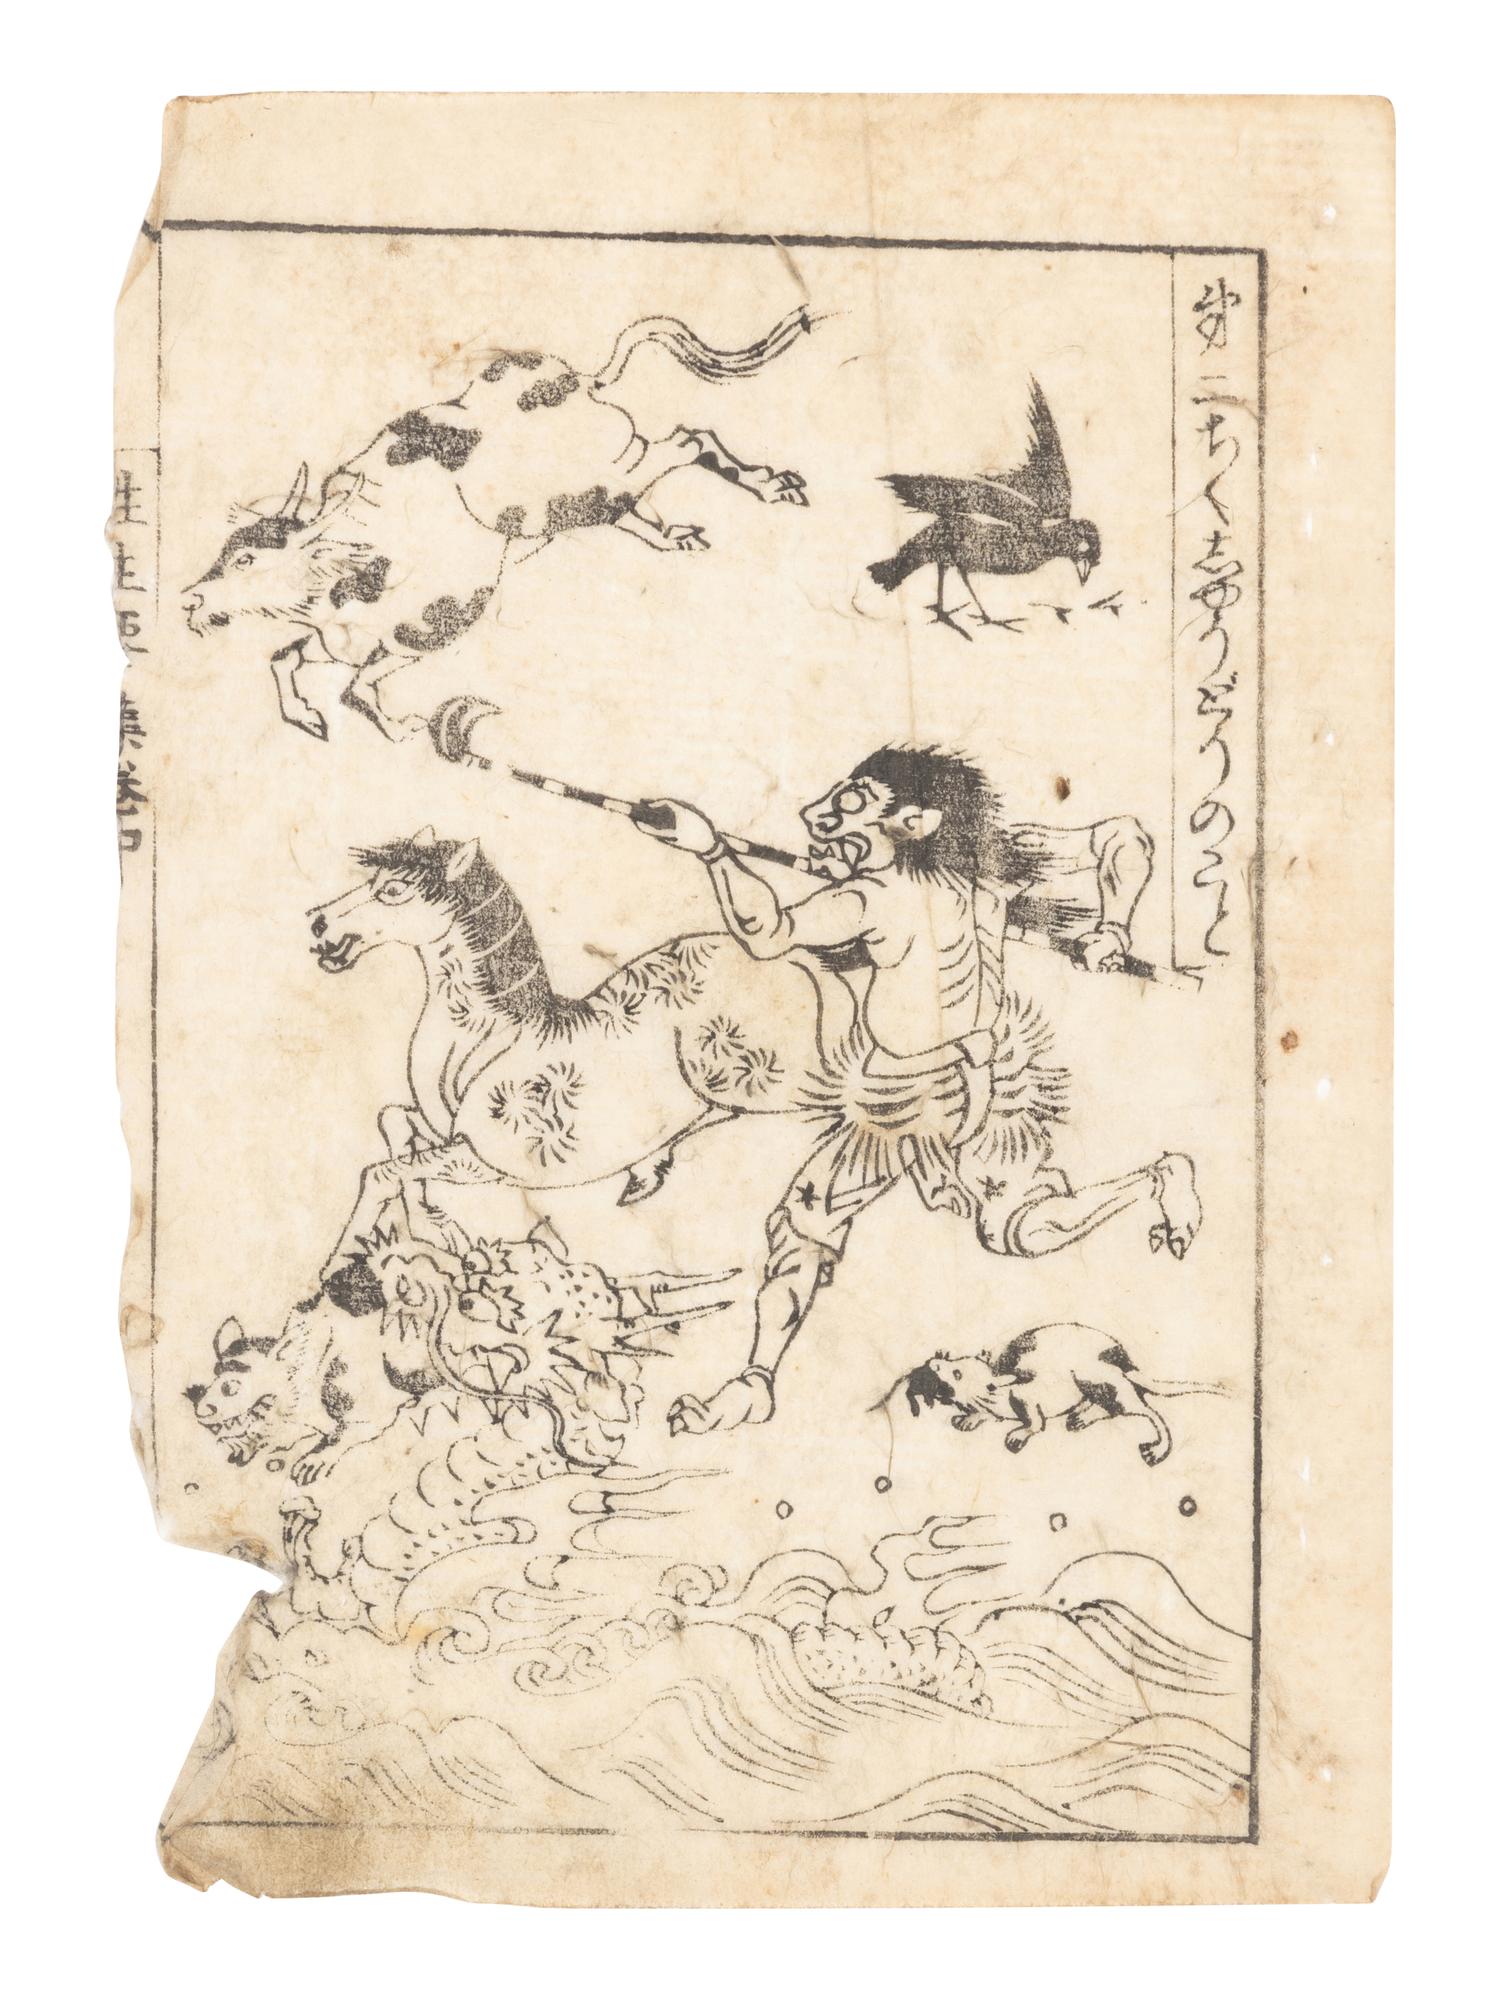 第二ちくしやうどうのこと
往生要集 如